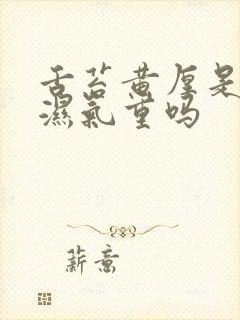 舌苔黄厚是
濕氣重吗
薪意